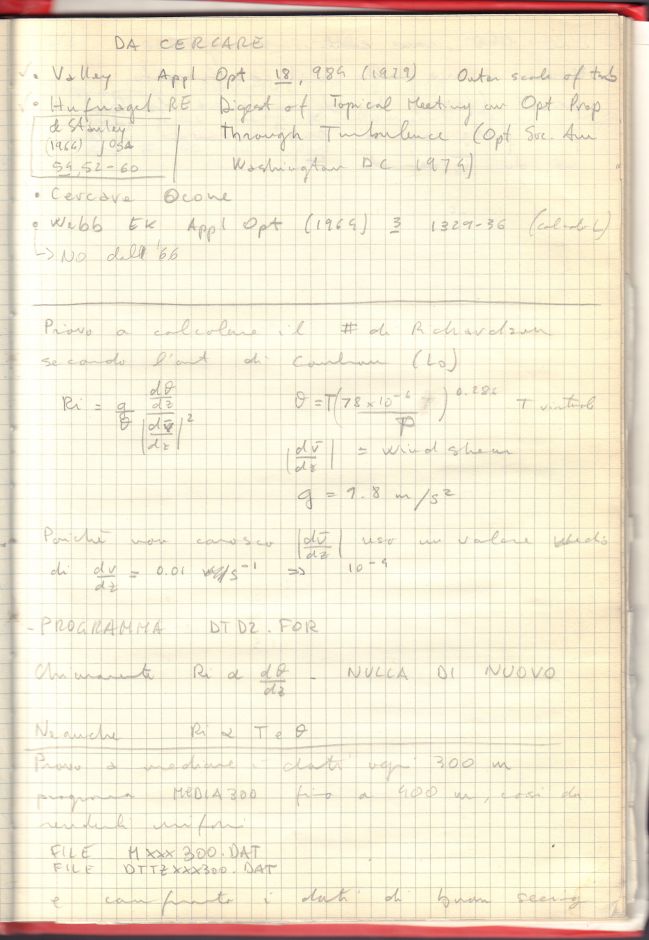 DA CERCARE
• Valley Appl Opt 18, 984 (1979) Outer scale of turb
• Hufnagel RE Digest of Topical Meeting on Opt Prop
& Stanley
(1964) JOSA
54, 52-60
through Turbulence (Opt Soc. Am
Washington DC 1974)
• Cercare Ocone
• Webb EK Appl Opt (1964) 3 1329-36 (
↳ NO dal '66
Provo a calcolare il # di Richardson
secondo l'art di Coulman (L0)
Ri = g/θ dθ/dz / |dv̄/dz|²
θ = T( 78×10⁻⁶ / P )^0.286 T virtuale
|dv̄/dz| = wind shear
g = 9.8 m/s²
Poiché non conosco |dv̄/dz| uso un valore medio
di dv/dz = 0.01 s⁻¹ => 10⁻⁴
- PROGRAMMA DTDZ.FOR
Chiaramente Ri α dθ/dz - NULLA DI NUOVO
Neanche Ri α T e θ
Provo a mediare i dati ogni 300 m
programma MEDIA300 fino a 400 m, così da
renderli uniformi
FILE Mxxx300.DAT
FILE DTTZxxx300.DAT
e confronto i dati di buon seeing